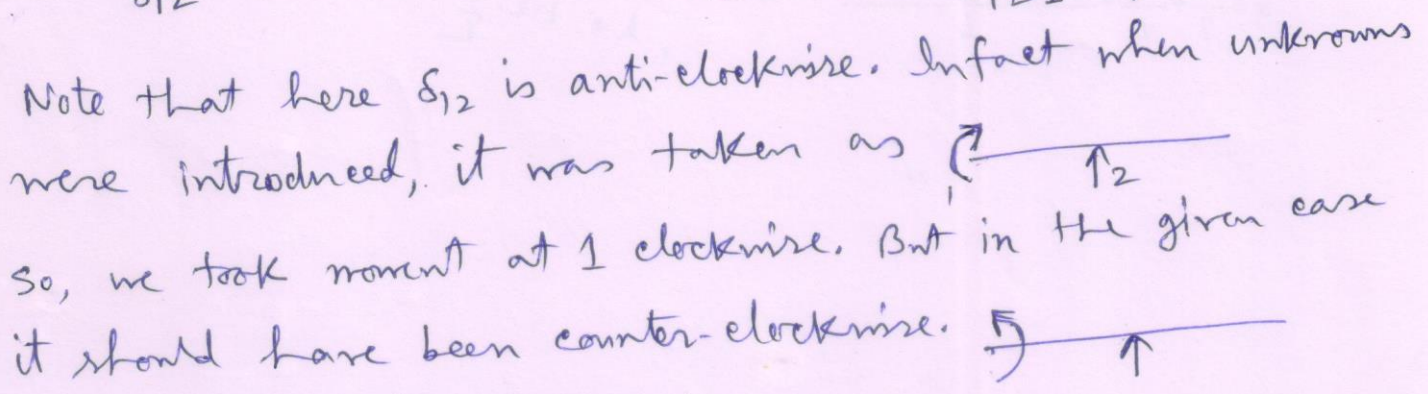 Note that here δ12 is anti-clockwise. Infact when unknowns
were introduced, it was taken as 1 2
so, we took moment at 1 clockwise. But in the given case
it should have been counter-clockwise.